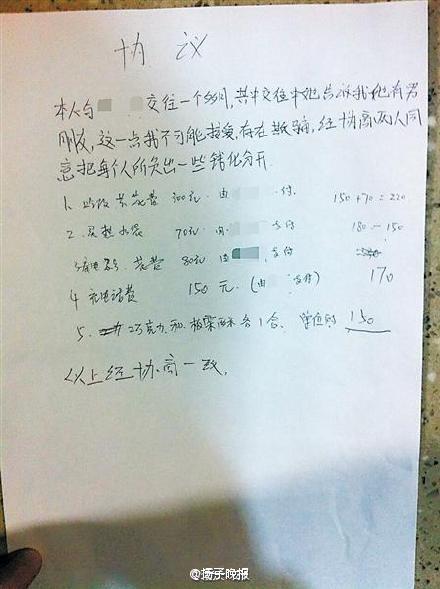 协 议
本人与 交往一个多月,其中交往中她告诉我她有男
朋友,这一点我不可能接受,存在欺骗,经协商两人同
意把每个人所负出一些钱化分开.
1. 吃饭共花费 300元.由 支付 150+70=220
2. 买鞋 70元 由 支付 180-150
3. 看电影 花费 80元 由 支付
4 充电话费 150元.(由 支付) 170
5. 巧克力和 各1合. 150
以上经协商一致.
@扬子晚报